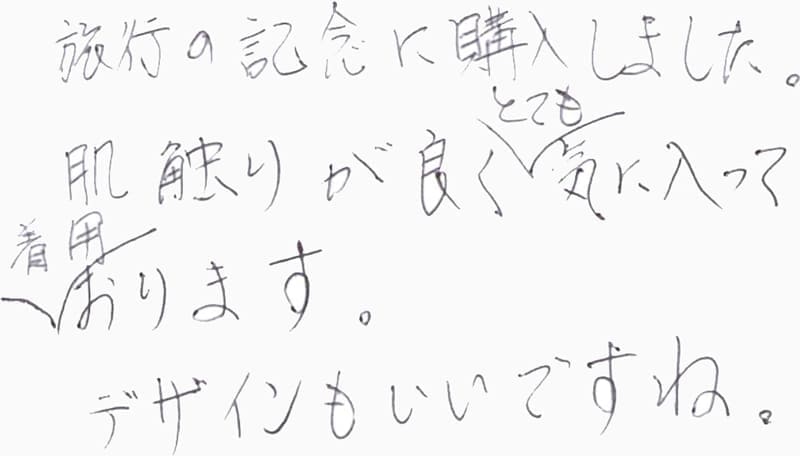 旅行の記念に購入しました。
肌触りが良くとても気に入って
着用おります。
デザインもいいですね。